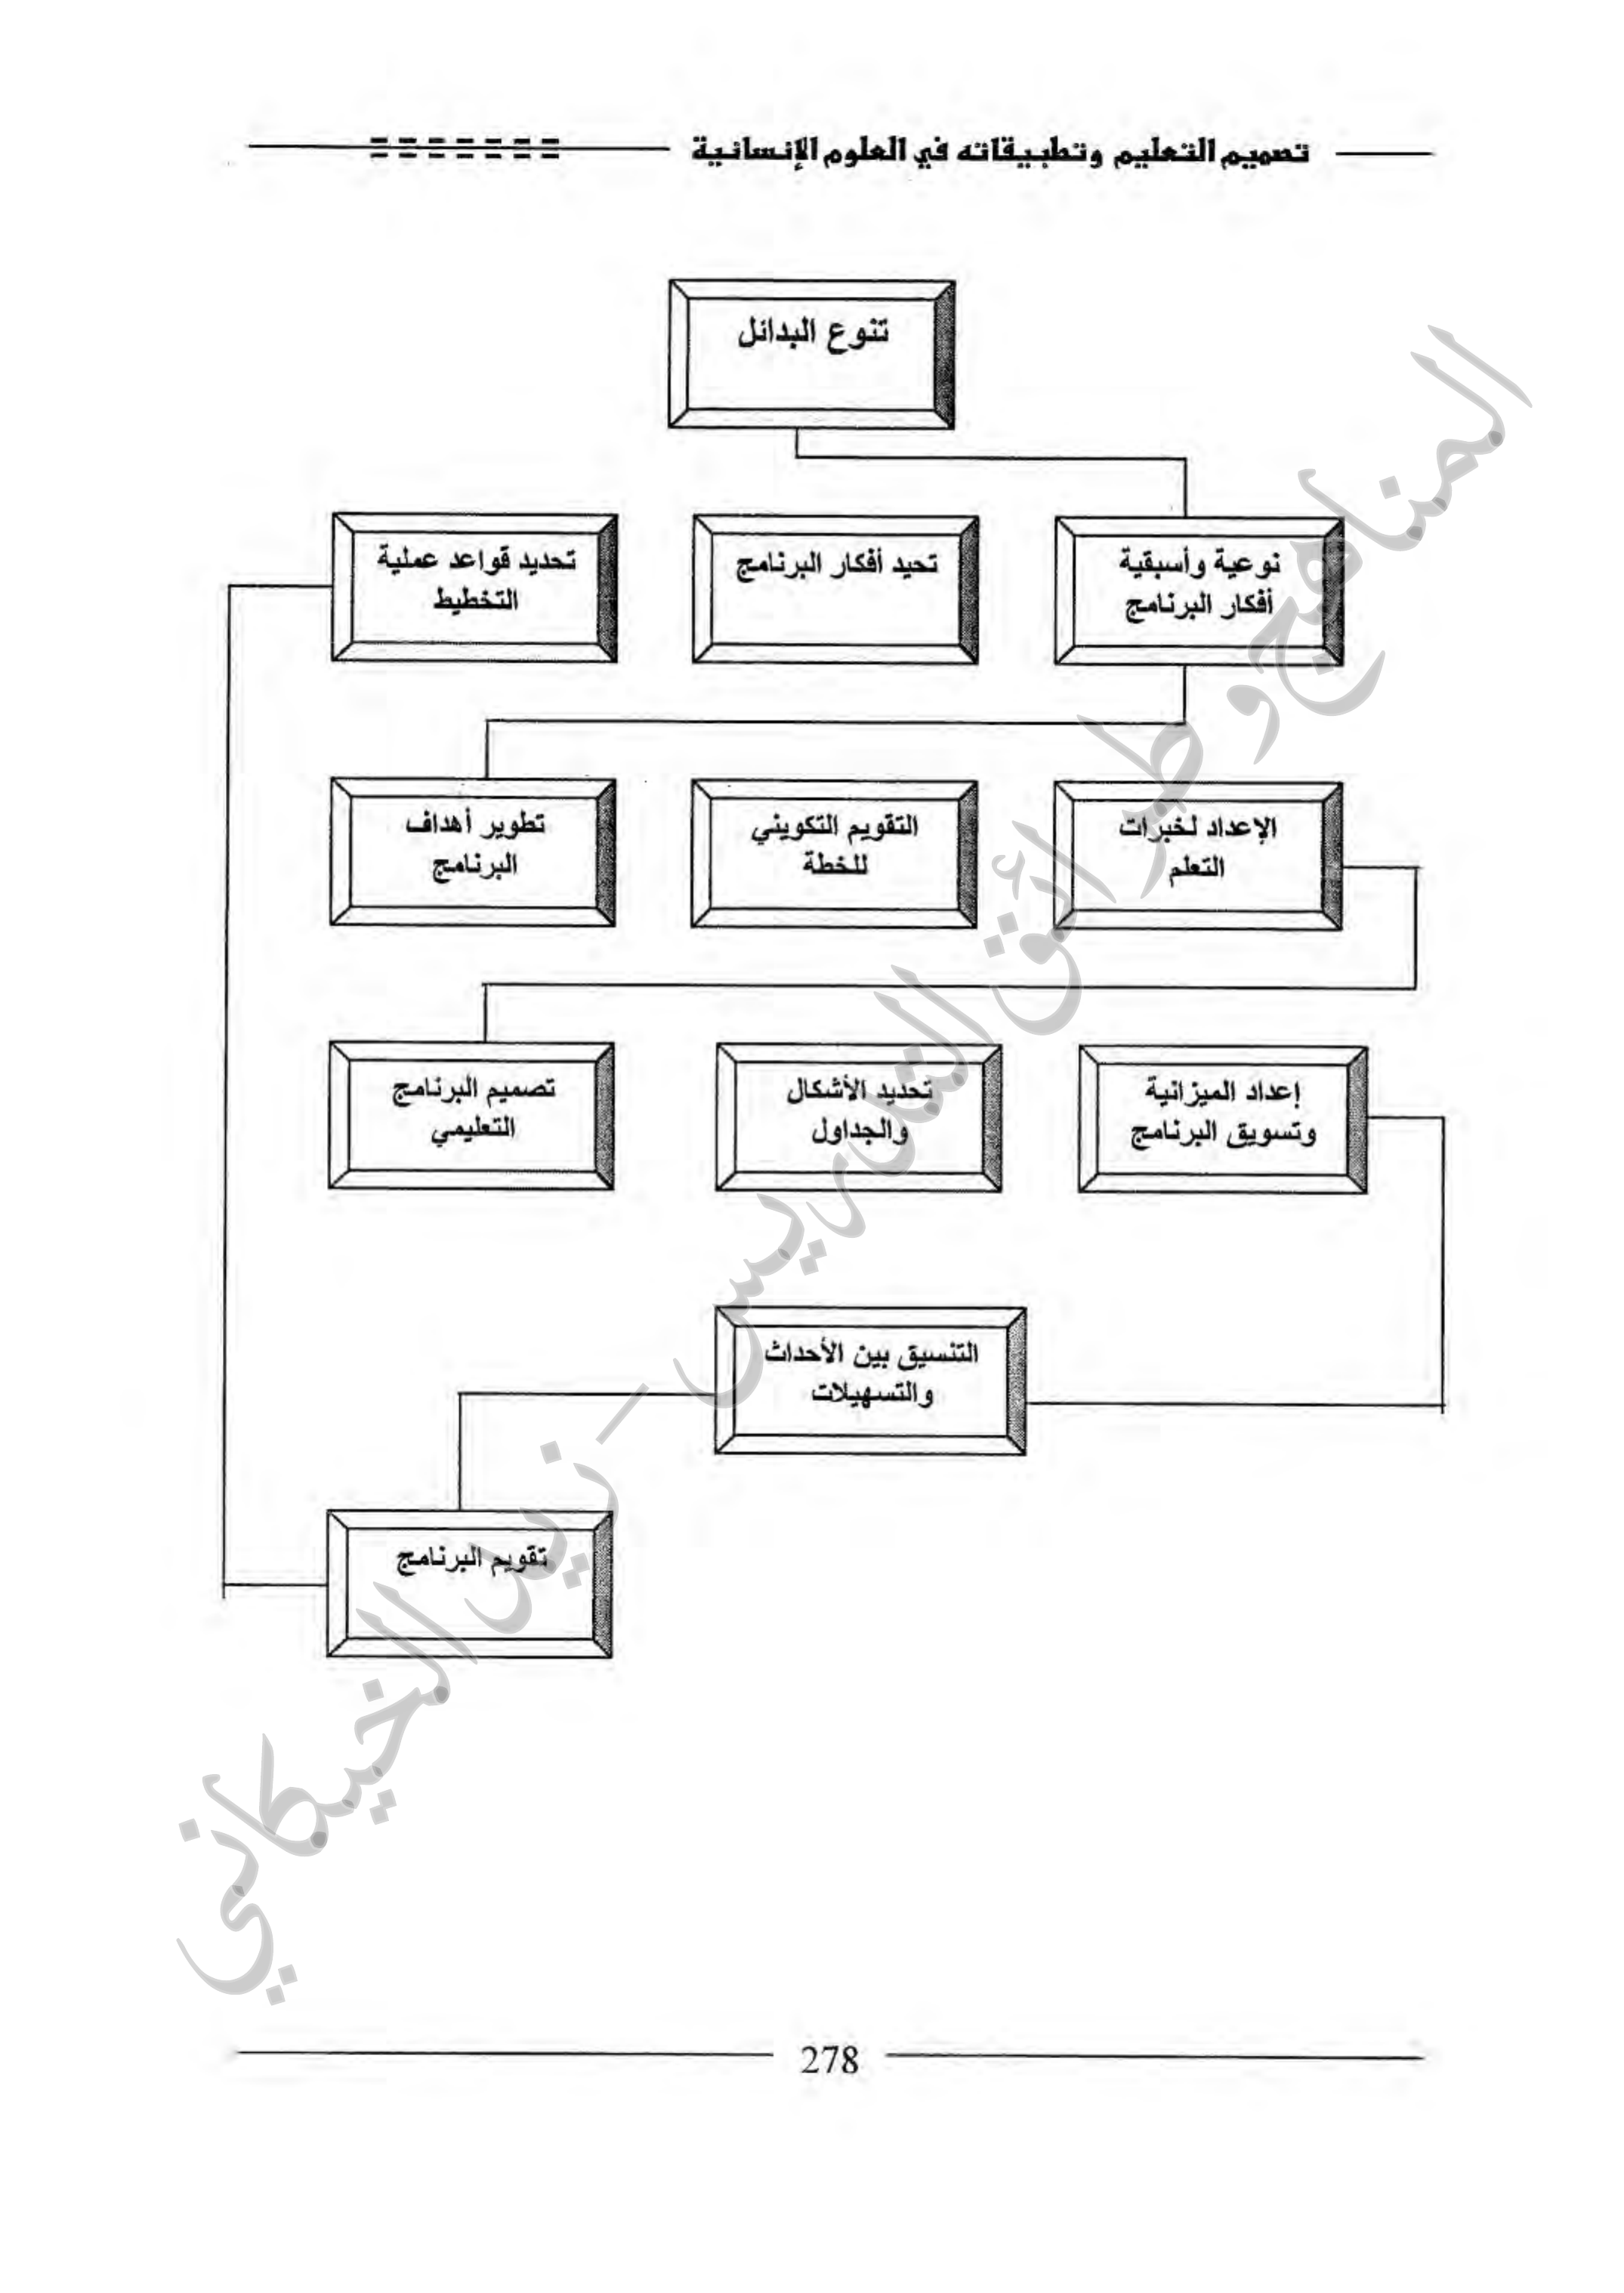 تصميم التعليم وتطبيقاته في العلوم الإنسانية
تنوع البدائل
نوعية وأسبقية
أفكار البرنامج
تحيد أفكار البرنامج
تحديد قواعد عملية
التخطيط
الإعداد لخبرات
التعلم
التقويم التكويني
للخطة
تطوير أهداف
البرنامج
إعداد الميزانية
وتسويق البرنامج
تحديد الأشكال
والجداول
تصميم البرنامج
التعليمي
التنسيق بين الأحداث
والتسهيلات
تقويم البرنامج
المناهج وطرائق التدريس - زيد الخيكاني
278